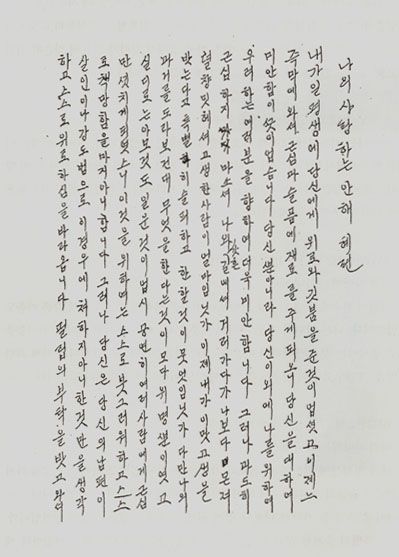 나의 사랑하는 안해 혜련
내가 일평생에 당신에게 위로와 깃붐을 준 것이 업섯고 이제 느
즉막에 와셔 근심과 슬픔에 재료를 주게 되오니 당신을 대하여
미안함이 끗이 업습니다 당신 뿐아니라 당신 이외에 나를 위하여
우려하는 여러분을 향하여 더욱 미안합니다 그러나 과도히
근심하지 마소셔 나와 갓흔 길에셔 거러가다가 나보다 몬져
철창 밋헤셔 고생한 사람이 얼마임닛가 이제 내가 이맛 고생을
밧는다고 특별히 슬퍼하고 한할 것이 무엇임닛가 다만 나의
과거를 도라보건대 무엇을 한다는 것이 모다 위명뿐이엿고
실디로는 아모것도 일운 것이 업시 공연히 여러사람에게 근심
만 깃치게 되엿스니 이것을 위하여는 스스로 붓그러워하고 스스
로 책망함을 마지아니합니다 그러나 당신은 당신의 남편이
살인이나 강도범으로 이 경우에 쳐하지 아니한 것만을 생각
하고 스스로 위로하심을 바라옵니다 필립의 부탁을 밧고